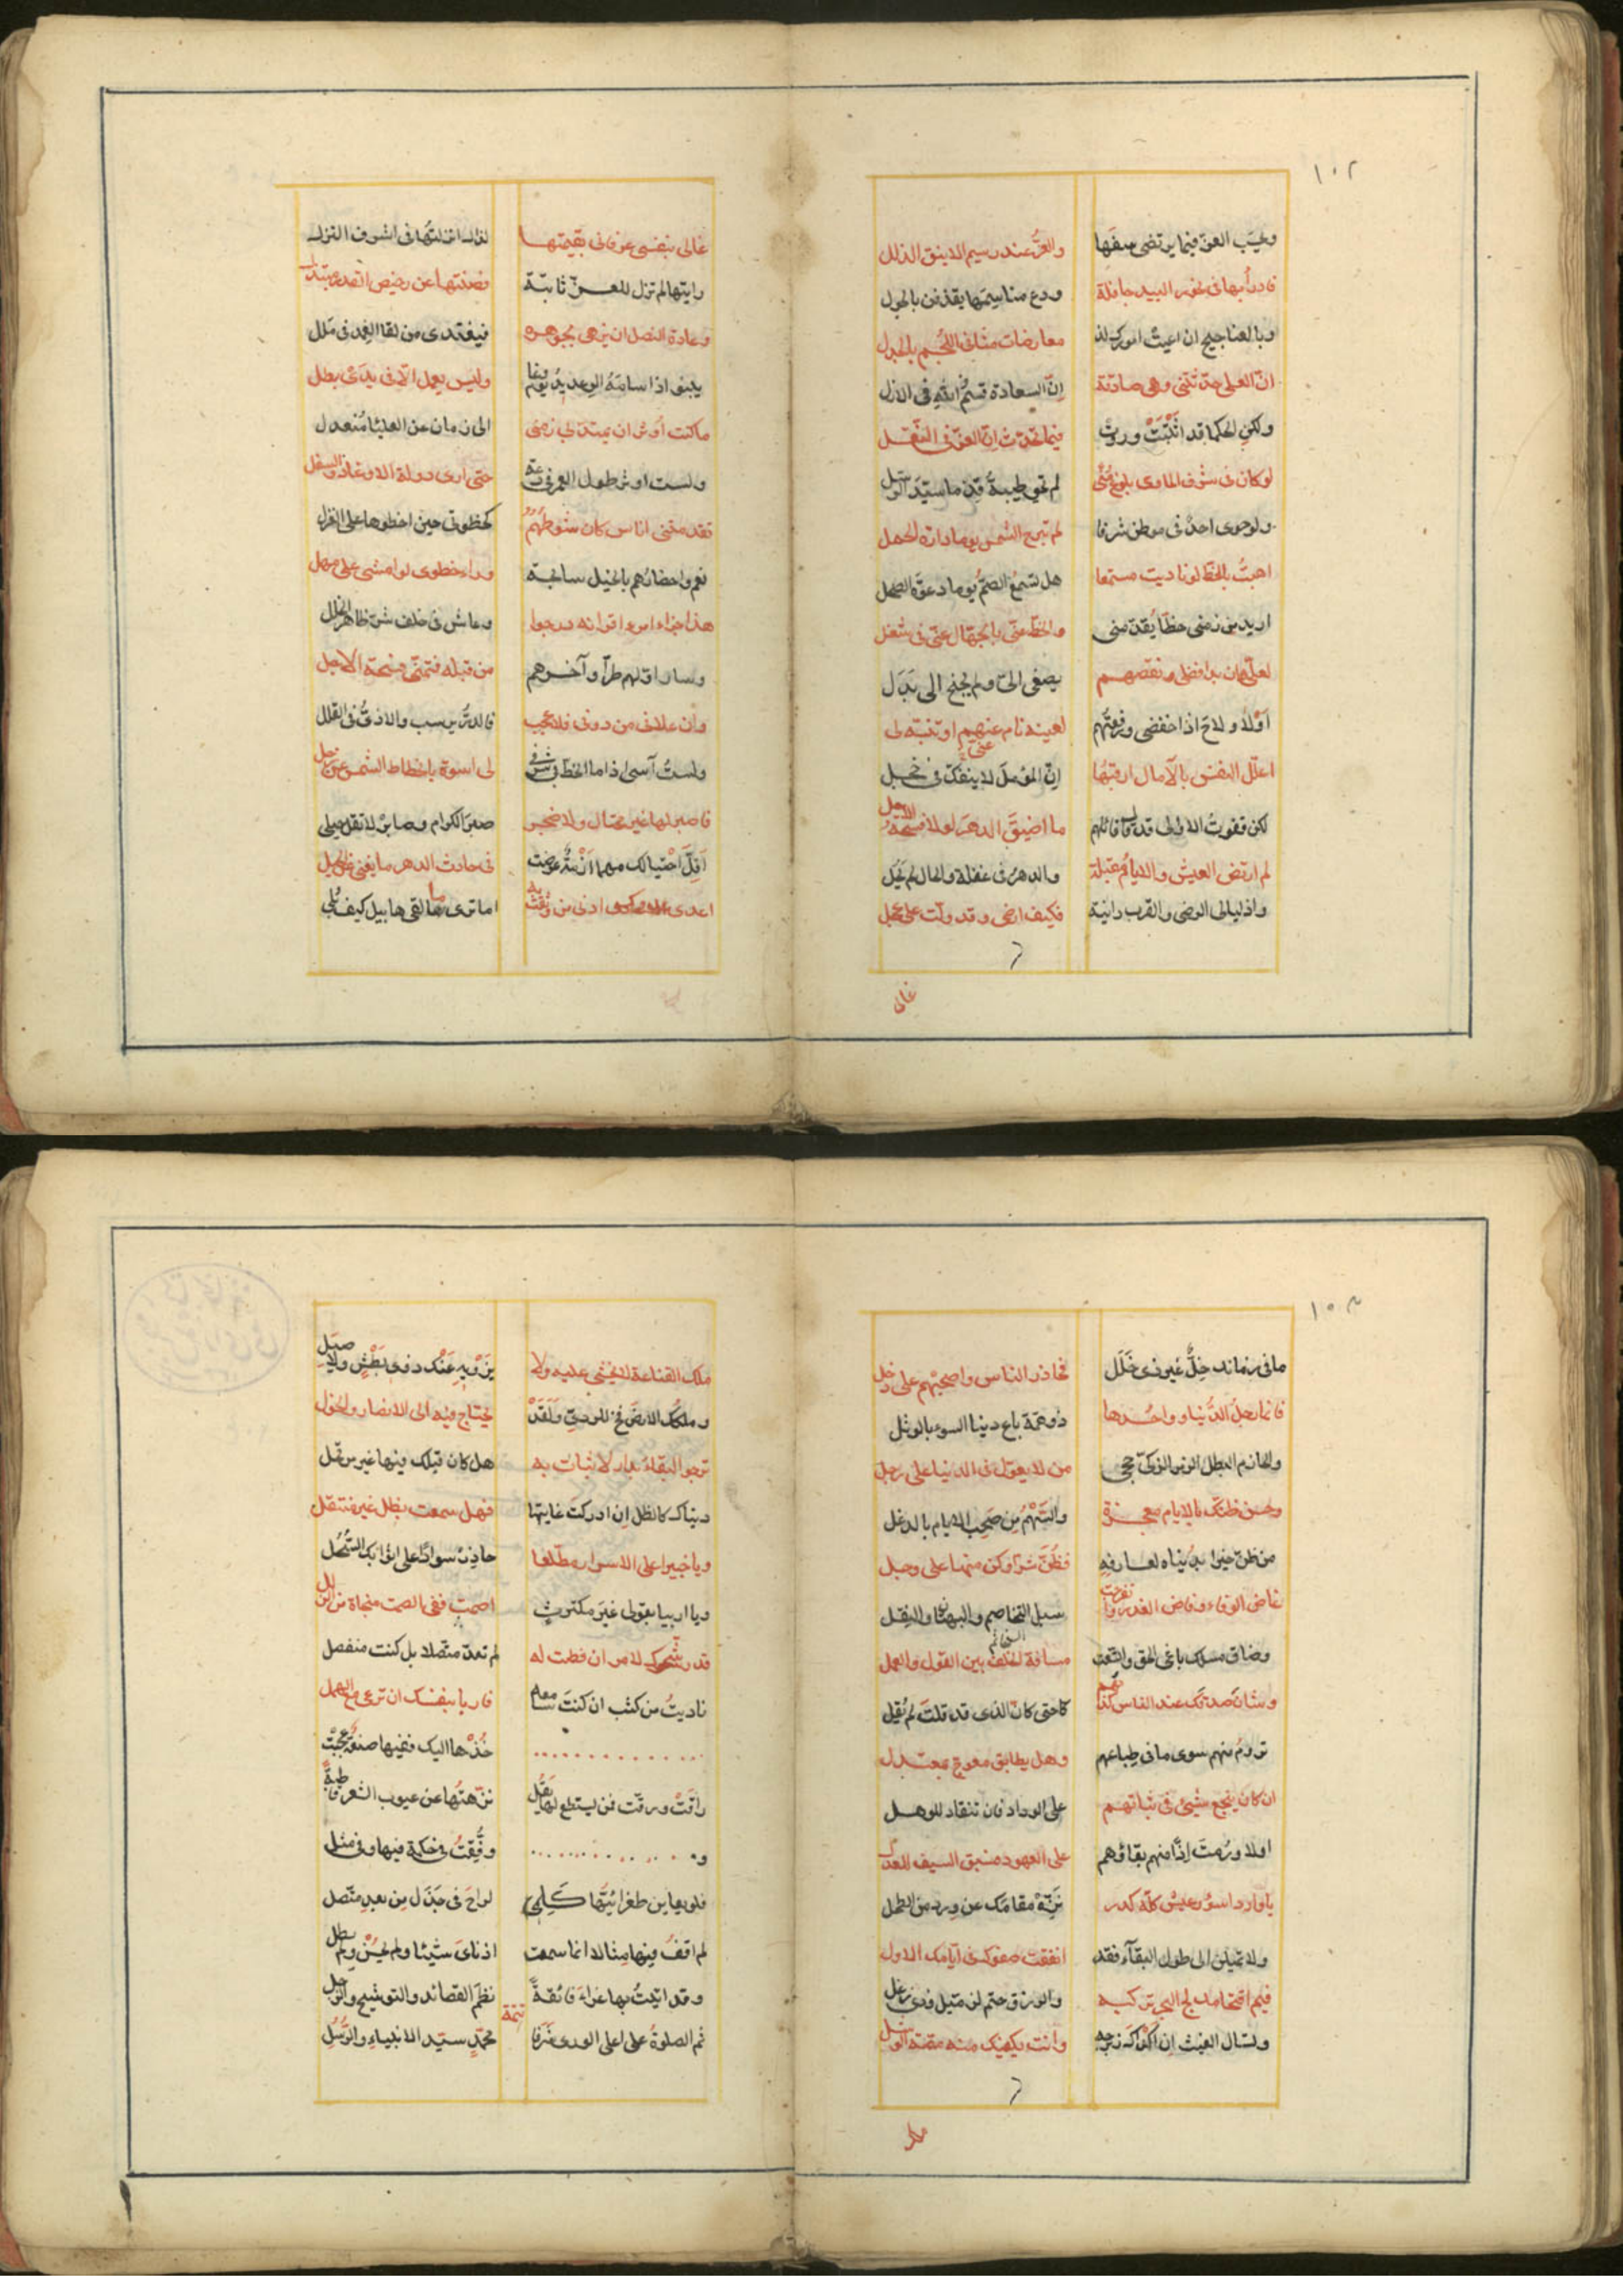 ١٠٢
وطيب العز فيما يرتضى سفها والعز عند رسيم الاينق الذلل
فادرأ بها فى نحور البيد جافلة ودع مناسمها يقذفن بالحول
وبالعناجيج ان اعيت معارضات مثانى اللجم بالجدل
ان العلى حدثتنى وهى صادقة إن السعادة قسم الله فى الازل
ولكن الحكما قد اثبتت وروت فيما تحدث ان العز فى النقل
لو كان فى شرف الماوى بلوغ منى لم تحو طيبة
ولو حوى احد فى موطن شرفا لم تبرح الشمس يوما دارة الحمل
اهبت بالحظ لو ناديت مستمعا هل تسمع الصم يوما دعوة الصحل
اريد من زمنى حظا يقدمنى والحظ عنى بالجهال عنى فى شغل
لعله ان بدا فضلى ونقصهم يصغى الى ولم يجنح الى بدل
اولا ولاح اذا خفضى ورفعتهم لعينه نام عنهم او تنبه لى
اعلل النفس بالآمال ارقبها إن المؤمل لا ينفك فى خجل
لكن قفوت الاولى قد قال قائلهم ما اضيق الدهر لولا فسحة الامل
لم ارتض العيش والايام مقبلة والدهر فى غفلة والحال لم يحل
واذ ليالى الرضى والقرب دانية فكيف ارضى وقد ولت على عجل
غالى
غالى بنفسى عرفانى بقيمتها لذاك انزلتها فى اشرف النزل
رايتها لم تزل للعز تائبة فصنتها عن رخيص القدر مبتذل
وعادة النصل ان يزهى بجوهره فيغتدى من لقا الغمد فى ملل
وليس يعمل الا فى يدى بطل
ما كنت أوثر ان يمتد بى زمنى الى زمان عن العليا منعدل
ولست اوثر طول العمر فى حتى ارى دولة الاوغاد والسفل
تقدمتنى اناس كان شوطهم كخطوتى حين اخطوها على الغزل
نعم واحضارهم بالخيل سابحة وراء خطوى لو امشى على مهل
هذا جزاء امرء اقرانه درجوا وعاش فى خلف شتى ظاهر الخلل
وساد اولهم طرا وآخرهم من قبله فتمنى فسحة الاجل
وان علانى من دونى فلا عجب فالدر يرسب
ولست آسى اذا ما الحظ لى اسوة بانحطاط الشمس عن زحل
فاصبر لها غير محتال ولا ضجر صبر الكرام وصابر لا تقل ميلى
أقل احتيالك مهما ازمة عرضت فى حادث الدهر ما يغنى عن الحيل
اعدى عدوك ادنى من وثقت به اما ترى ما لقى هابيل كيف بلى
١٠٣
ما فى زمانك خل غير ذى خلل فحاذر الناس واصحبهم على دخل
فانما رجل الدنيا وواحدها ذو همة باع دنيا السوء بالوشل
والحازم البطل من لا يعول فى الدنيا على رجل
وحسن ظنك بالايام معجزة والسهم من صحب الايام بالدغل
من ظن خيرا بدنياه لعارفه فظن شرا وكن منها على وجل
غاض الوفاء وفاض الغدر وانفرجت سبل التخاصم والبهتان والبقل
وضاق مسلك باغى الحق واتسعت مسافة الخلف بين القول والعمل
وشان صدقك عند الناس كذبهم كاحتى كان الذى قد قلت لم يقل
تروم منهم سوى ما فى طباعهم وهل يطابق معوج بمعتدل
ان كان ينجع شيئ فى ثباتهم على الوداد فان تنقاد للوهل
اولا ورمت اذا منهم بقاؤهم على العهود فسبق السيف للعذل
يا واردا سؤر عيش كله كدر نزه مقامك عن ورد من الطحل
ولا تميلن الى طول البقاء فقد انفقت صفوك فى أيامك الاول
فيم اقتحامك لج البحر تركبه والرزق حتم لن
ولسال الغيث ان وانت يكفيك منه مصة الوشل
ملك
ملك القناعة لا يخشى عليه ولا يزويه عنك ذوى بطش ولا
وملكك الارض يحتاج فيه الى الانصار والخول
ترجو البقاء بدار لا ثبات به هل كان قبلك فيها غير مرتحل
دنياك كالظل ان ادركت غايتها فهل سمعت بظل غير منتقل
ويا خبيرا على الاسرار مطلعا حاذر سوادا على اثوابك النحل
ويا اريبا بقولى غير مكترث اصمت ففى الصمت منجاة من الزلل
قد رشحوك لامر ان فطنت له لم تعد متصلا بل كنت منفصل
ناديت من كثب ان كنت سامعه فاربا بنفسك ان ترعى مع الهمل
. . . . . . . . . . . . خذها اليك ففيها صنعة عجبت
راقت ورقت فمن يستطع لها يقل نزهتها عن عيوب الشعر قاطبة
و . . . . . . . . . . وفقت فى حكمة فيها وفى مثل
فلو يعاين طغرائيها كلمى لراح فى جذل من بعد متصل
لم اقف فيها مثالا انما سمعت اذناى شيئا ولم يحسن ولم يطل
وقد اتيت بها غراء فائقة نظم القصائد والتوشيح والزجل
تتمة
ثم الصلوة على اعلى الورى شرفا محمد سيد الانبياء والرسل